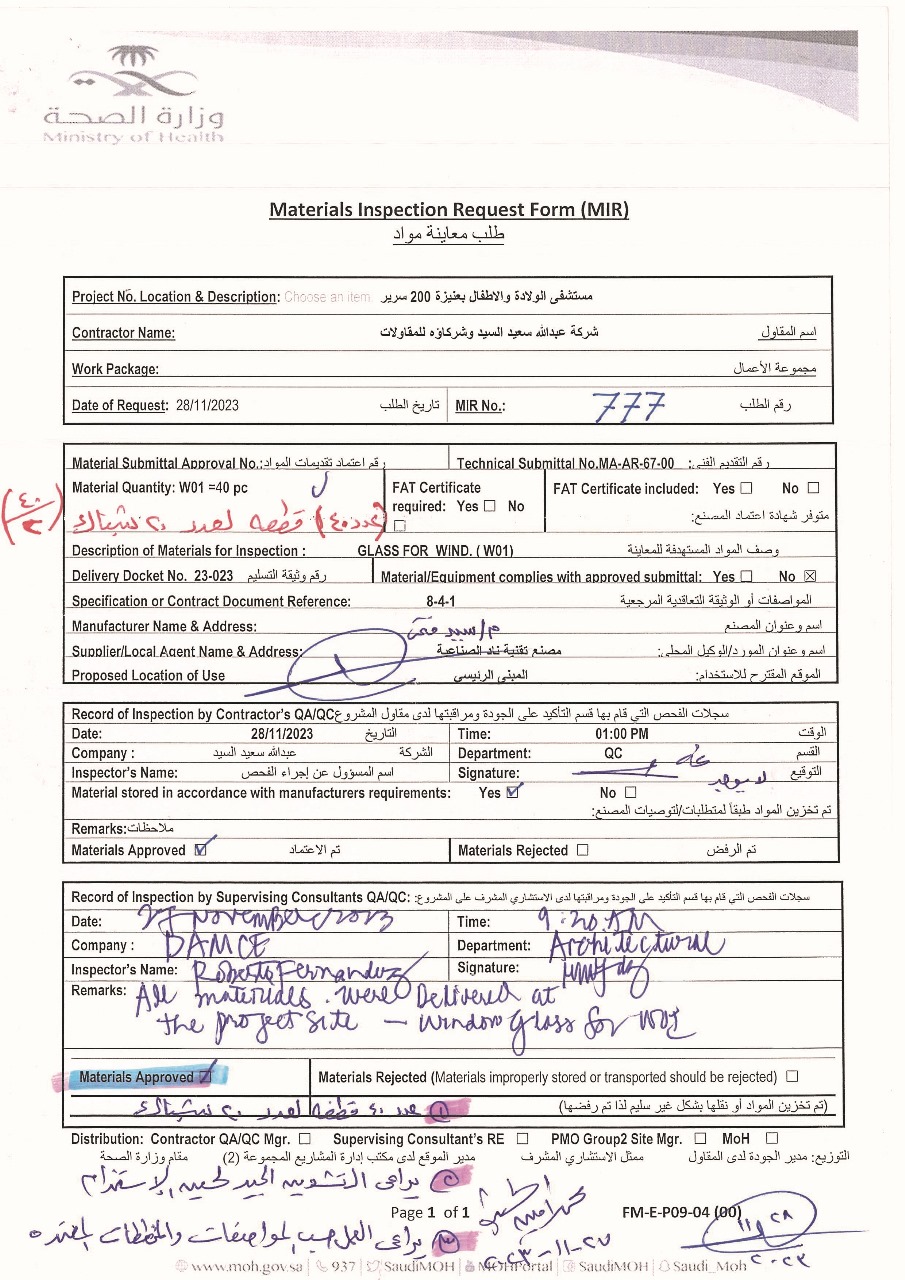 وزارة الصحة
Ministry of Health
Materials Inspection Request Form (MIR)
طلب معاينة مواد
Project No. Location & Description: Choose an item. مستشفى الولادة والاطفال بعنيزة 200 سرير
Contractor Name: شركة عبدالله سعيد السيد وشركاؤه للمقاولات اسم المقاول
Work Package: مجموعة الأعمال
Date of Request: 28/11/2023 تاريخ الطلب MIR No.: 777 رقم الطلب
Material Submittal Approval No.: رقم اعتماد تقديمات المواد Technical Submittal No.MA-AR-67-00 رقم التقديم الفني:
Material Quantity: W01 =40 pc FAT Certificate required: Yes ☐ No ☐ FAT Certificate included: Yes ☐ No ☐
(٤٠/٢) (عدد ٤٠) قطعه لعدد ٢٠ شباك متوفر شهادة اعتماد المصنع:
Description of Materials for Inspection : GLASS FOR WIND. ( W01) وصف المواد المستهدفة للمعاينة
Delivery Docket No. 23-023 رقم وثيقة التسليم Material/Equipment complies with approved submittal: Yes ☐ No ☒
Specification or Contract Document Reference: 8-4-1 المواصفات أو الوثيقة التعاقدية المرجعية
Manufacturer Name & Address: اسم وعنوان المصنع
Supplier/Local Agent Name & Address: مصنع تقنية ناد الصناعية اسم وعنوان المورد/الوكيل المحلي:
Proposed Location of Use المبنى الرئيسى الموقع المقترح للاستخدام:
Record of Inspection by Contractor's QA/QC سجلات الفحص التي قام بها قسم التأكيد على الجودة ومراقبتها لدى مقاول المشروع
Date: 28/11/2023 التاريخ Time: 01:00 PM الوقت
Company : عبدالله سعيد السيد الشركة Department: QC القسم
Inspector's Name: اسم المسؤول عن إجراء الفحص Signature: التوقيع
لا يوجد
Material stored in accordance with manufacturers requirements: Yes ☑ No ☐
تم تخزين المواد طبقاً لمتطلبات/لتوصيات المصنع:
Remarks: ملاحظات
Materials Approved ☑ تم الاعتماد Materials Rejected ☐ تم الرفض
Record of Inspection by Supervising Consultants QA/QC: سجلات الفحص التي قام بها قسم التأكيد على الجودة ومراقبتها لدى الاستشاري المشرف على المشروع:
Date: November 2023 Time: 9:20 AM
Company : DAMCE Department: Architectural
Inspector's Name: Roberto Fernandez Signature:
Remarks: All materials were Delivered at
the project site – Window Glass for W01
Materials Approved ☑ Materials Rejected (Materials improperly stored or transported should be rejected) ☐
① عدد ٤٠ قطعه لعدد ٢٠ شباك (تم تخزين المواد أو نقلها بشكل غير سليم لذا تم رفضها)
Distribution: Contractor QA/QC Mgr. ☐ Supervising Consultant's RE ☐ PMO Group2 Site Mgr. ☐ MoH ☐
التوزيع: مدير الجودة لدى المقاول ممثل الاستشاري المشرف مدير الموقع لدى مكتب إدارة المشاريع المجموعة (2) مقام وزارة الصحة
② يراعى التشوين الجيد لحين الإستخدام
Page 1 of 1 FM-E-P09-04 (00)
③ يراعى العمل حسب المواصفات والمخططات المعتمده
٢٠٢٣-١١-٢٧
١١/٢٨
٢٠٢٣
www.moh.gov.sa 937 SaudiMOH MOHPortal SaudiMOH Saudi_Moh